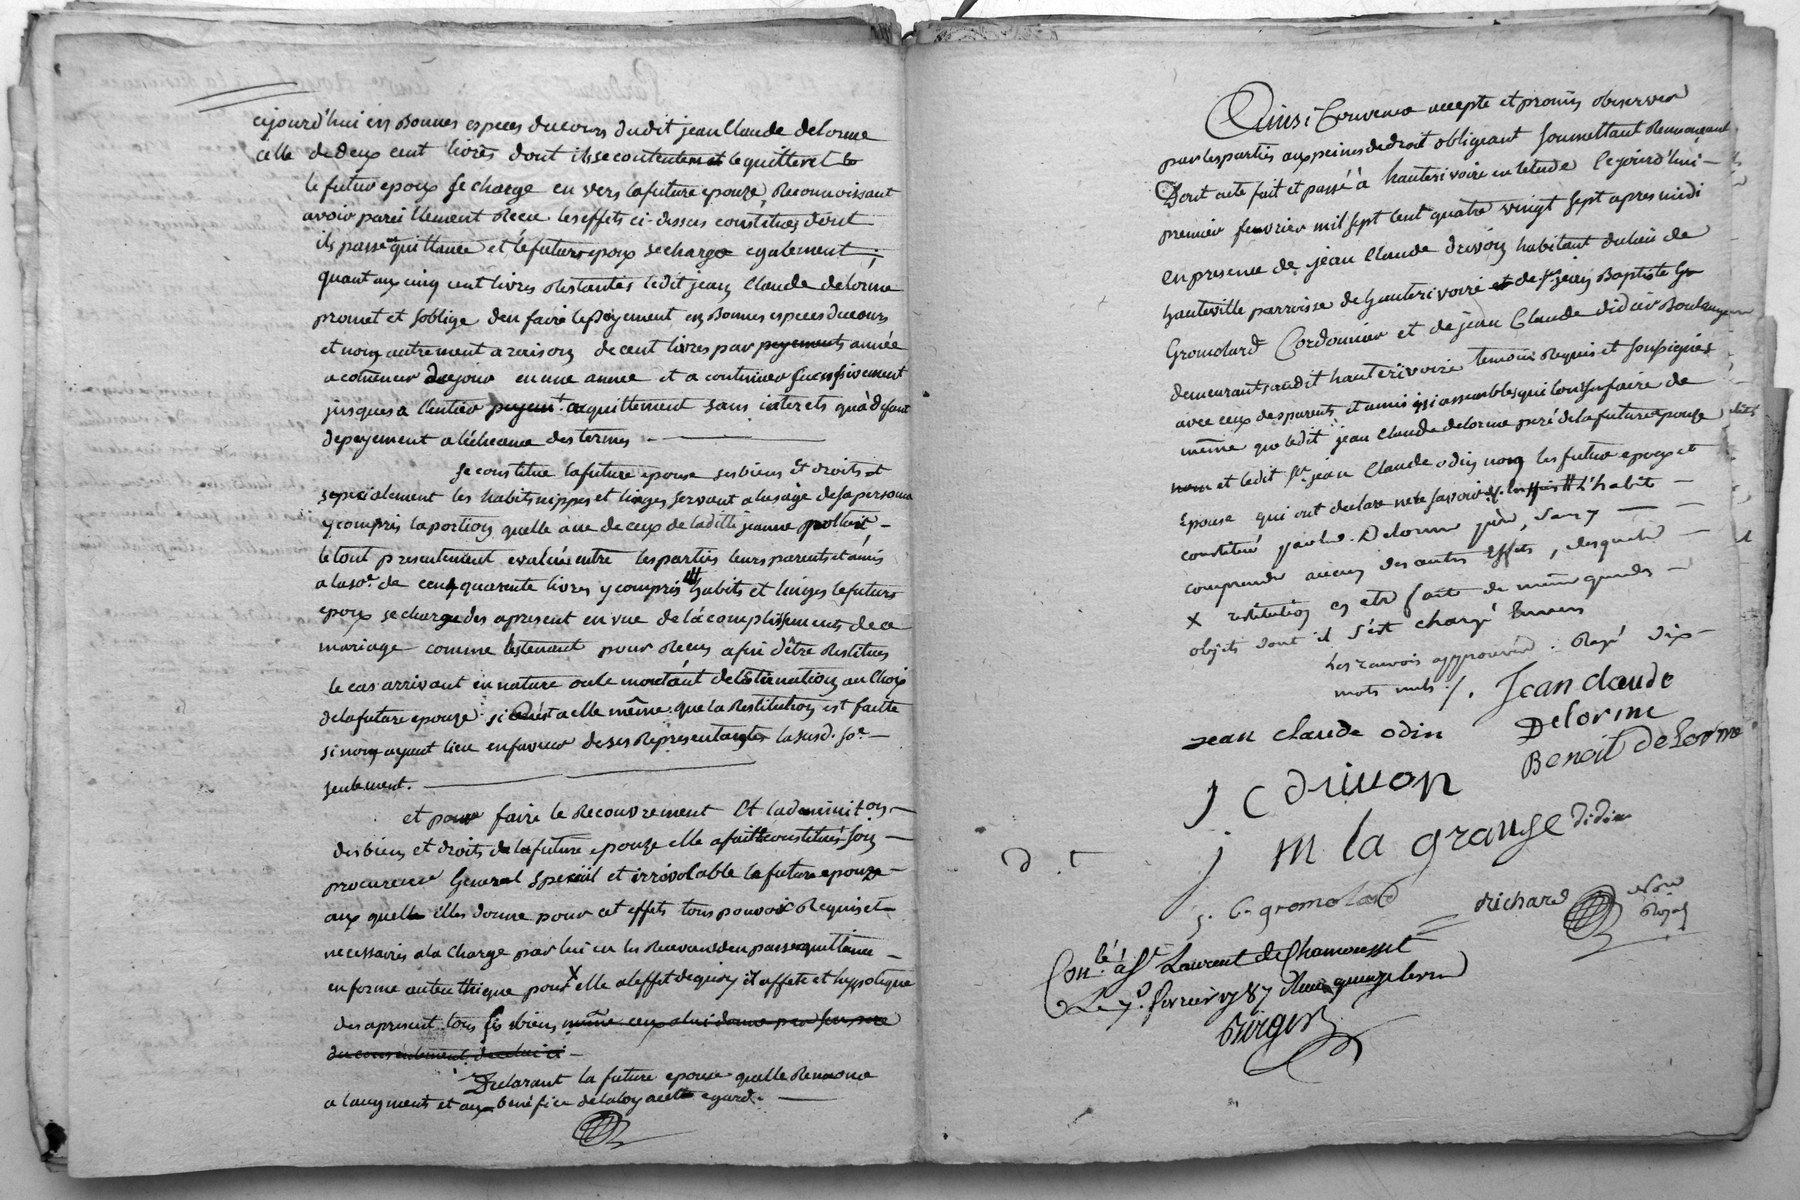 cejourd'hui en Bonnes especes ducours dudit jean Claude delorme
celle de deux cent livres dont ils se contentent et le quittent
le futur epoux se charge en vers la future epouze, Reconnoissant
avoir pareillement Recu les effets ci-dessus constitués dont
ils passe quittance et le futur epoux se charge egalement ;
quant aux cinq cent livres Restantes ledit jean Claude delorme
promet et soblige den faire le Payement en Bonnes especes ducours
et non autrement a raison de cent livres par payements année
a comencer dujour en une année et a continuer successivement
jusques a l'entier payemt. acquittement sans interets qu'à défaut
de payement a lécheance des termes -
se constitue la future epouse ses biens et droits et
specialement les habits nippes et linges servant a lusage de sa personne
y compris la portion quelle a eue de ceux de laditte jeanne
le tout presentement evalué entre les parties leurs parents et amis
a la se. de cent quarente livres y compris habits et linges le futur
epoux se charge des apresent en vue de l'acomplissements de ce
mariage comme les tenant pour Recus afin d'être Restitués
le cas arrivant en nature ou le montant de l'estimation au Choix
de la future epouze si c'est a elle même que la Restitution est faitte
si non ayant lieu en faveur de ses Representants la susd. se. -
seulement.
et pour faire le Recouvrement et ladminiton. -
des biens et droits de la future epouze elle a fait et constitué son -
procureur General Special et irrévolable le futur epoux -
aux quelle elles donne pour cet effets tous pouvoir Requis et -
necessaires a la Charge par lui en les Recevant den passer quittance -
en forme autenthique pour X elle a leffet de quoy il affecte et hypotéque
des apresent tous ses biens même ceux a lui donné par son pere
du consentement de celui ci -
Declarant la future epouse quelle Renonce
a laugments et aux benéfice de la loy a cet egard. -
Ainsi Convenu accepte et promis observer
par les parties aux peines de droit obligeant soumettant Renonçant
Dont acte fait et passé à hauterivoire en letude Cejourd'hui -
premier fevrier mil sept cent quatre vingt sept apres midi
en presence de jean Claude drivon habitant du lieu de
hauteville parroisse de hauterivoire et de Sr. jean Baptiste Gr
Gromolard Cordonnier et de jean Claude didier Boulanger
demeurants audit hauterivoire temoins Requis et soussignés
avec ceux des parents et amis ici assemblés qui lont su faire de
même que ledit jean Claude delorme pere de la future epouze
nom et ledit Sr. jean Claude odin non les futur epoux et
epouse qui ont declare ne le savoir # L'habit -
constitué par led. Delorme père, dans y
comprendre aucun des autres effets, desquels -
X restitution en etre faite de même que des -
objets dont il s'est chargé Envers
Les renvois approuvés. Rayé dix -
mots nuls ./. Jean claude
Delorme
jean claude odin
Benoit delorme
j C drivon
j m la grange didier
D. C
j. b. gromolard
Richard Nore
Royal
Conlé. à St Laurent de Chamousset
Le 7. fevrier 1787 Recu quinze livres